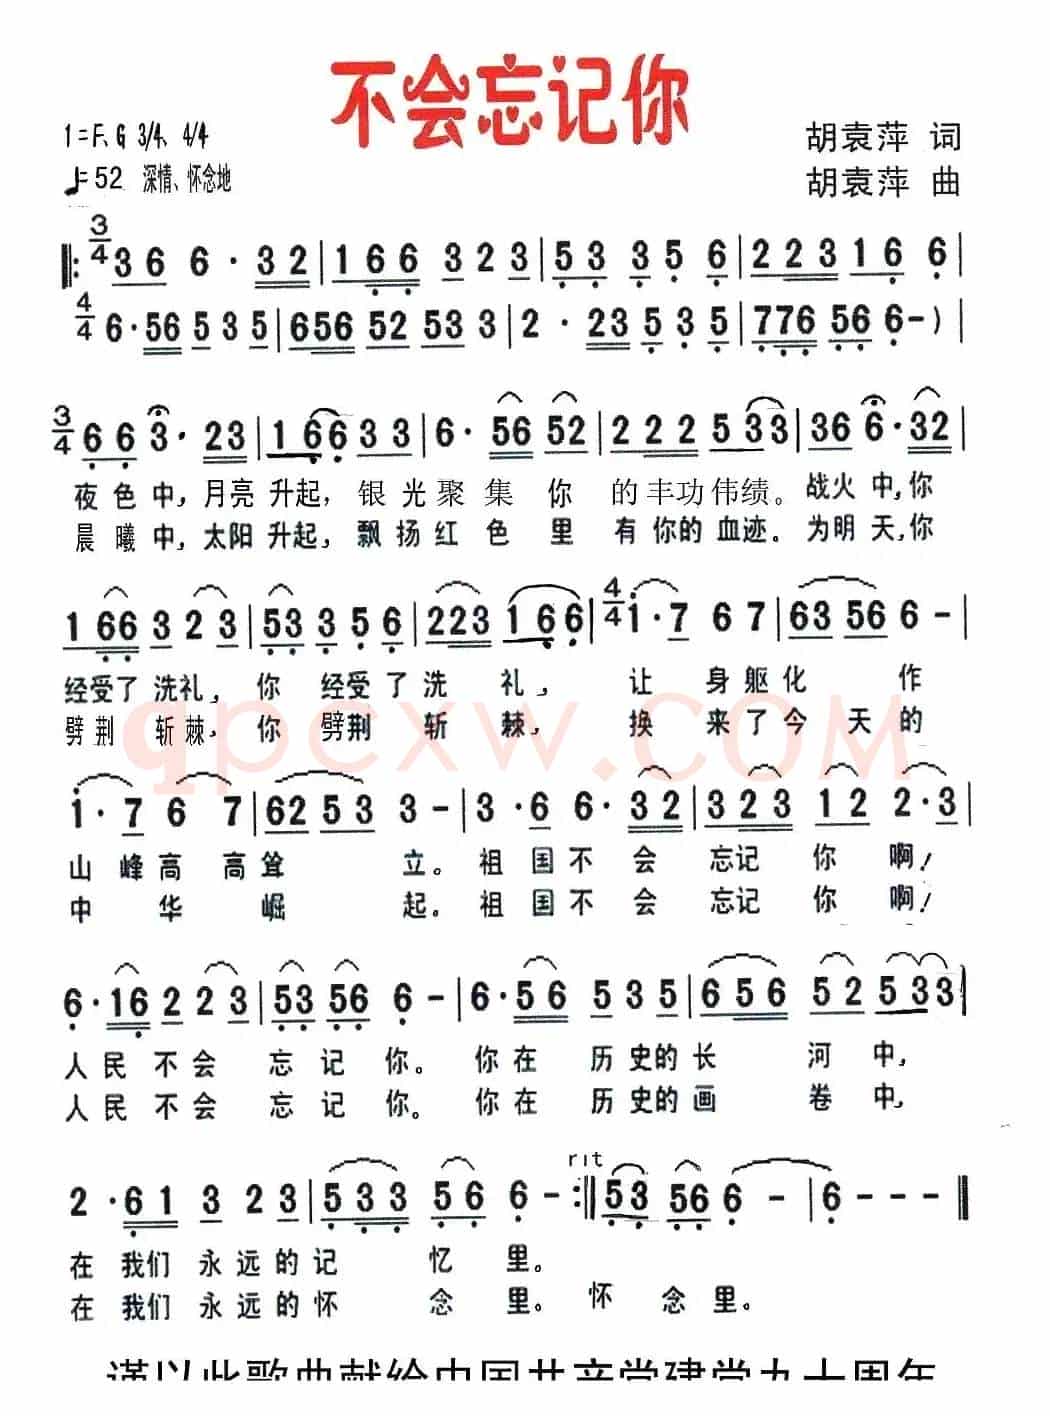 不会忘记你
1=F、G 3/4、4/4
胡袁萍 词
♩=52 深情、怀念地
胡袁萍 曲
3/4 ‖: 36 6· 32 | 166 323 | 53 35 6 | 2231 6 6 |
4/4 6·56 535 | 656 52 53 3 | 2· 23 535 | 776 56 6-) |
3/4 6 6 3· 23 | 166 33 | 6· 56 52 | 222 533 | 36 6· 32 |
夜色中,月亮升起,银光聚集你的丰功伟绩。战火中,你
晨曦中,太阳升起,飘扬红色里有你的血迹。为明天,你
166 323 | 53 356 | 223 166 | 4/4 1·7 6 7 | 63 56 6- |
经受了洗礼,你经受了洗礼,让身躯化作
劈荆斩棘,你劈荆斩棘,换来了今天的
qpcxw.COM
1·7 6 7 | 62 53 3- | 3·6 6·32 | 323 12 2·3 |
山峰高高耸立。祖国不会忘记你啊!
中华崛起。祖国不会忘记你啊!
6·16 2 2 3 | 53 56 6- | 6·56 535 | 656 52 533 |
人民不会忘记你。你在历史的长河中,
人民不会忘记你。你在历史的画卷中,
rit
2·61 3 23 | 533 56 6- :‖ 53 56 6- | 6--- ‖
在我们永远的记忆里。
在我们永远的怀念里。怀念里。
谨以此歌曲献给中国共产党建党九十周年